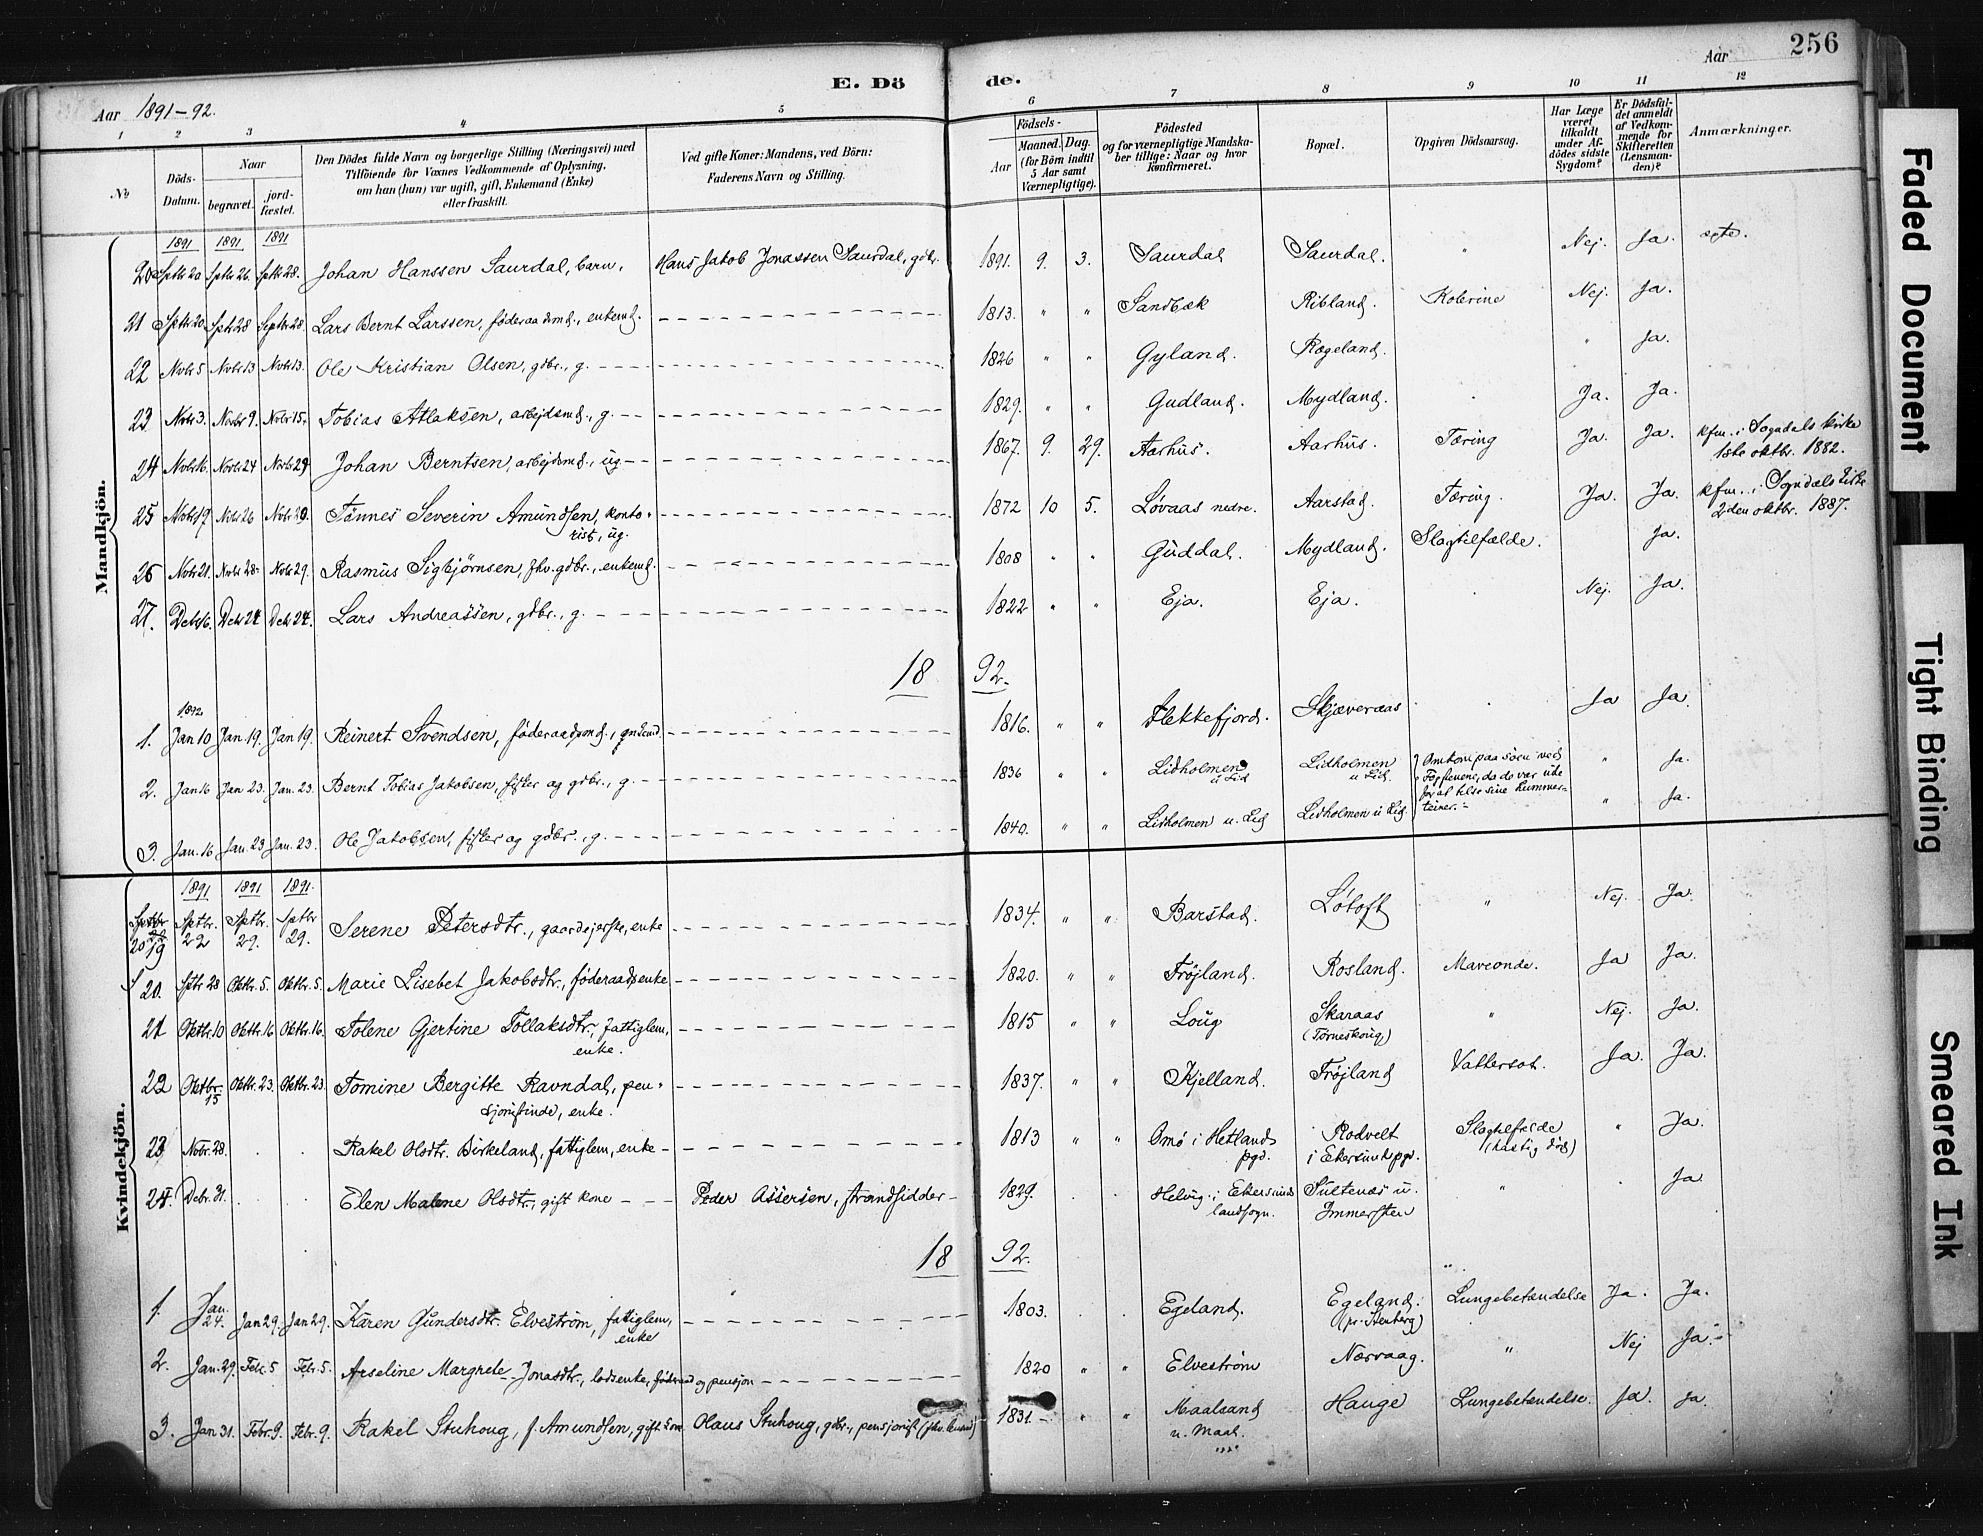 256
E. Dö de.
Aar 1891-92. Aar
1 2 3 4 5 6 7 8 9 10 11 12
No
Döds-Datum.
Naar
begravet.
jord-fæstet.
Den Dödes fulde Navn og borgerlige Stilling (Næringsvei) med
Tilföiende for Voxnes Vedkommende af Oplysning,
om han (hun) var ugift, gift, Enkemand (Enke)
eller fraskilt.
Ved gifte Koner: Mandens, ved Börn:
Faderens Navn og Stilling.
Födsels-
Aar
Maaned. Dag.
(for Börn indtil
5 Aar samt
Værnepligtige).
Födested
og for værnepligtige Mandska-
ber tillige: Naar og hvor
konfirmeret.
Bopæl.
Opgiven Dödsaarsag.
Har Læge
været
tilkaldt
under Af-
dödes sidste
Sygdom?
Er Dödsfal-
det anmeldt
af Vedkom-
mende for
Skifteretten
(Lensman-
den)?
Anmærkninger.
Mandkjön.
1891 1891 1891
20 Sptbr 20 Sptbr 26. Sptbr 28. Johan Hanssen Saurdal, barn, Hans Jakob Jonassen Saurdal, gdbr. 1891. 9. 3. Saurdal Saurdal. " Nej. Ja. ægte.
21 Sptbr 20 Sptbr 28 Septbr 28. Lars Bernt Larssen, føderaadsmd., enkemd. 1813. " " Sandbæk Ribland. Kolerine Nej. Ja.
22 Novbr 5 Novbr 13 Novbr 13. Ole Kristian Olsen, gdbr., g. 1826 " " Gyland. Rægeland. " Ja.
23 Novbr 3. Novbr 9. Novbr 15. Tobias Atlaksen, arbejdsmd., g. 1829. " " Gudland. Mydland. . Ja. Ja.
24 Novbr 16. Novbr 24 Novbr 29 Johan Berntsen, arbejdsmd., ug. 1867. 9. 29. Aarhus. Aarhus. Tæring Ja. Ja. kfm. i Sogndals kirke
1ste oktbr. 1882.
25 Novbr 19 Novbr 26 Novbr 29. Tønnes Severin Amundsen, konto-
rist, ug. 1872 10 5. Løvaas nedre. Aarstad. Tæring. Ja. Ja. kfm. i Sogndals kirke
2den oktbr. 1887.
26 Novbr 21. Novbr 28. Novbr 29. Rasmus Sigbjørnsen, fhv. gdbr., enkemd. 1808 " " Guddal. Mydland. Slagtilfælde. Ja.
27. Debr 16. Debr 24 Debr 24. Lars Andreassen, gdbr., g. 1822 " " Eja. Eja. . Nej. Ja.
18 92.
1892
1. Jan 10 Jan 19. Jan 19. Reinert Svendsen, føderaadsmd., 1816. " " Flekkefjord. Skjæveraas . Ja Ja.
2. Jan 16 Jan 23. Jan. 23. Bernt Tobias Jakobsen, fisker og gdbr., g. 1836 " " Lidholmen
u. Lid Lidholmen
u. Lid. Omkom paa søen ved
da de var ude
for at tilse sine hummer-
teiner. " Ja.
3. Jan. 16 Jan. 23 Jan. 23. Ole Jakobsen, fisker og gdbr., g. 1840. " " Lidholmen u. Lid Lidholmen u. Lid. " Ja.
Kvindekjön.
1891 1891 1891.
19 Sptbr. 22 Sptbr. 29. Sptbr 29. Serene Petersdtr., enke 1834. " " Barstad. Løtoft " Nej. Ja.
20. Sptr 28 Oktbr. 5. Oktbr. 5. Marie Lisebet Jakobsdtr., føderaadsenke 1820. " " Frøjland. Rosland. Mavaonde. Ja Ja.
21 Oktbr. 10 Oktbr. 16 Oktbr. 16. Tolene Gjertine Tollaksdtr., fattiglem,
enke. 1815 " " Loug Skaraas
" Nej. Ja.
22 Oktbr. 15 Oktbr. 23. Oktbr. 23. Tomine Bergitte Ravndal, pen-
sjonistinde, enke. 1837. " " Kjelland. Frøjland Vattersot. Ja. Ja.
23 Nobr. 28. . . Rakel Olsdtr. Birkeland, fattiglem, enke 1813 " " Omø i Hetlands
pgd. Rodvelt
i Ekersunds pgd. Slagtilfælde
(hastig død) " Ja.
24. Debr. 31. . . Elen Malene Olsdtr., gift kone Peder Assersen, strandsidder 1829. . . Helvig i Ekersunds
landsogn. Sultenæs u.
Immersten " Ja
18 92.
1. Jan. 24. Jan 29. Jan 29. Karen Gundersdtr. Elvestrøm, fattiglem,
enke 1803. . . Egeland. Egeland.
(pr. Stenberg) Lungebetændelse Ja. Ja.
2. Jan. 29. Febr. 5 Febr. 5. Aseline Margrete Jonasdtr., lodsenke, føderaad og pensjon 1820 " " Elvestrøm Nærvaag. " Nej Ja.
3. Jan 31. Febr. 9. Febr. 9. Rakel Stuhoug, f. Amundsen, gift kone Olaus Stuhoug, gdbr., pensjonist (fhv. lensmd) 1831. " " Maalsand
u. Maal. Hauge Lungebetændelse. Ja. Ja.
Faded Document
Tight Binding
Smeared Ink